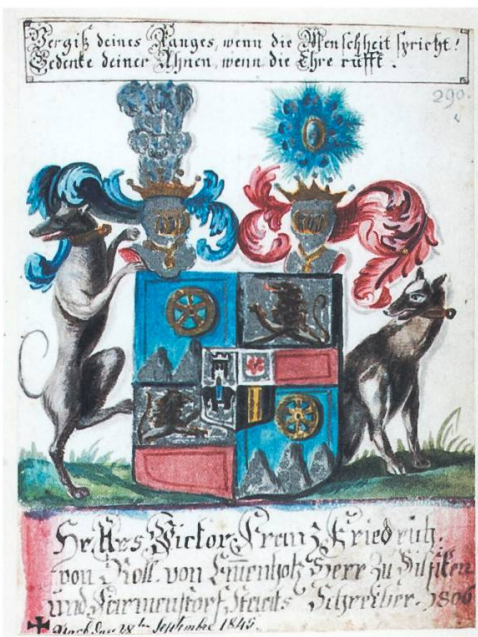 Vergiß deines Ranges, wenn die Menschheit spricht!
Gedenke deiner Ahnen, wenn die Ehre rufft.
290.
Victor Franz Friedrich.
von Roll von Emenholz Herr zu Hilfiken
und Sarmenstorf, Staats Schreiber. 1806
den 28ten September 1845.